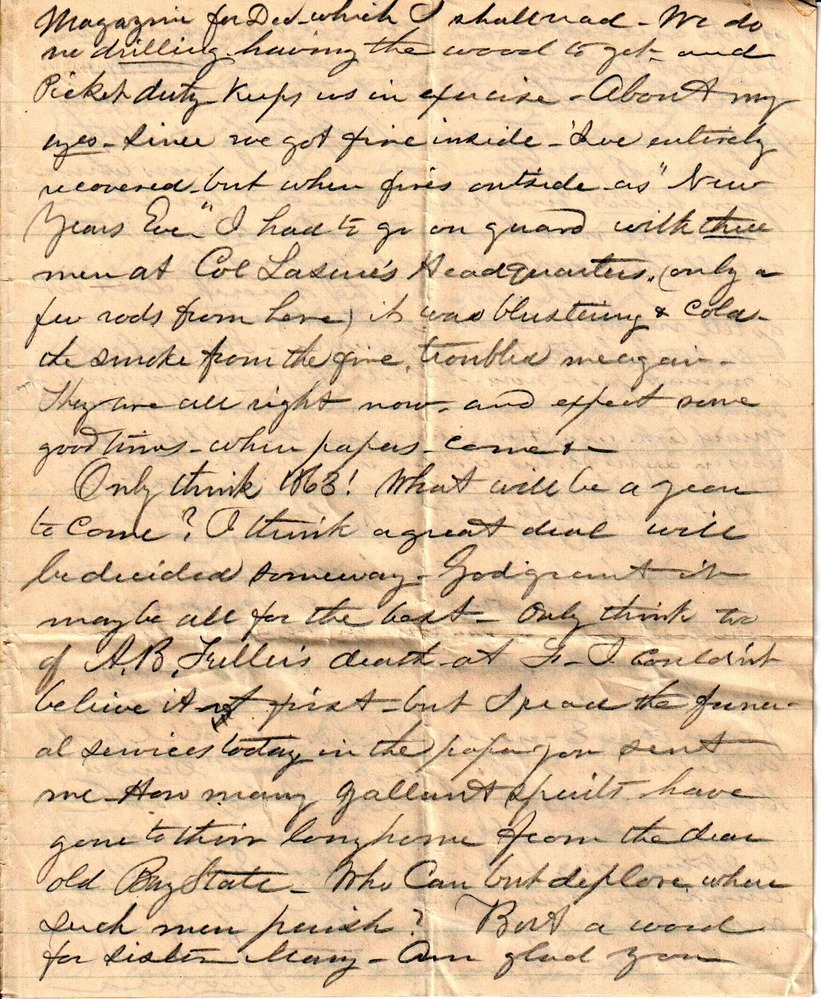 Magazine for Dec. which I shall read - We do
no drilling having the wood to get and
Picket duty keeps us in exercise - About my
eyes - Since we got fire inside - I've entirely
recovered, but when fires outside - as "New
Years Eve" I had to go on guard with three
men at Col Headquarters, (only a
few rods from here) it was blustering & cold -
the smoke from the fire, troubled me again -
They are all right now, and expect some
good times - when papers - come &
Only think 1863! What will be a year
to come? I think a great deal will
be decided someway - God grant it
may be all for the best - Only think too
of A. B. Fuller's death - at F - I couldn't
believe it at first - but I read the funer-
al services today in the paper you sent
me - How many gallant spirits have
gone to their long home from the dear
old Bay State - Who Can but deplore when
such men perish? But a word
for sister Mary - Am glad you